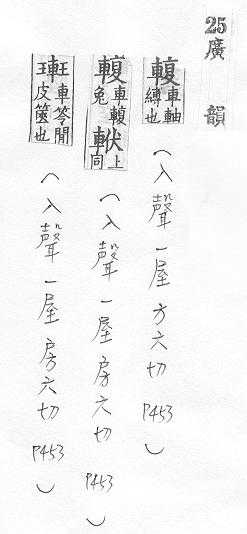 25廣韻
輹車軸縛也（入聲一屋方六切P453）
輹車輹兔軷上同（入聲一屋房六切P453）
車笭閒皮篋也（入聲一屋房六切P453）